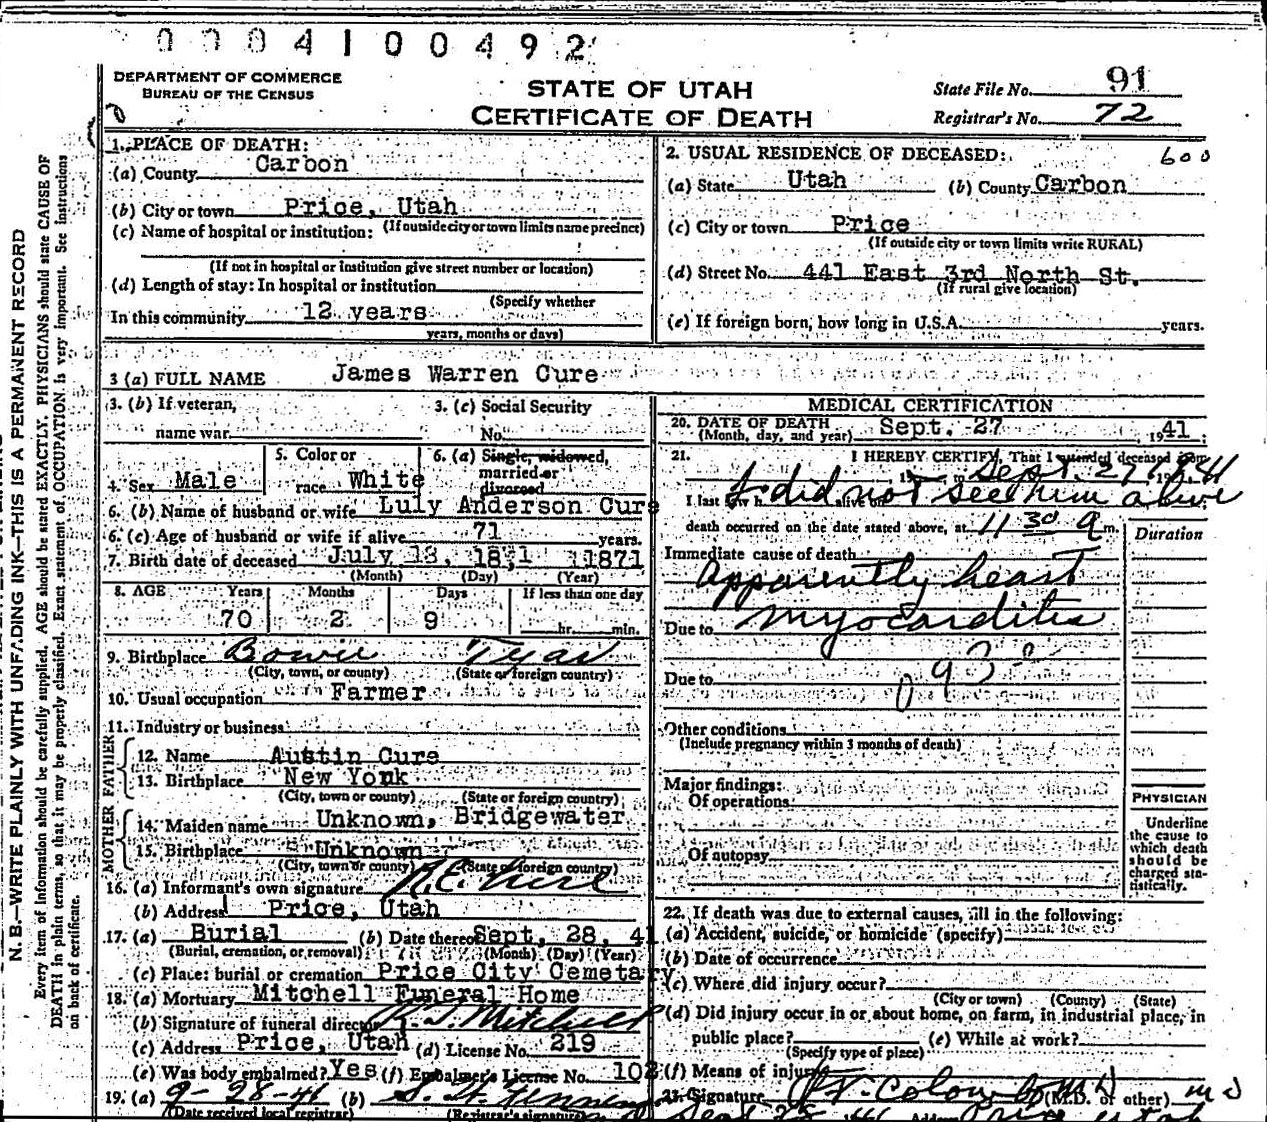 0004100492
DEPARTMENT OF COMMERCE
BUREAU OF THE CENSUS
STATE OF UTAH
CERTIFICATE OF DEATH
State File No. 91
Registrar's No. 72
1. PLACE OF DEATH:
(a) County Carbon
(b) City or town Price, Utah
(If outside city or town limits name precinct)
(c) Name of hospital or institution:
(If not in hospital or institution give street number or location)
(d) Length of stay: In hospital or institution
(Specify whether
In this community 12 years
years, months or days)
2. USUAL RESIDENCE OF DECEASED: 600
(a) State Utah (b) County Carbon
(c) City or town Price
(If outside city or town limits write RURAL)
(d) Street No. 441 East 3rd North St.
(If rural give location)
(e) If foreign born, how long in U.S.A. years.
3 (a) FULL NAME James Warren Cure
3. (b) If veteran,
name war
3. (c) Social Security
No.
4. Sex Male
5. Color or
race White
6. (a) Single, widowed,
married or
divorced
6. (b) Name of husband or wife Luly Anderson Cure
6. (c) Age of husband or wife if alive 71 years.
7. Birth date of deceased July 18, 1871
(Month) (Day) (Year)
8. AGE Years Months Days If less than one day
70 2 9 hr. min.
9. Birthplace Bowie Texas
(City, town, or county) (State or foreign country)
10. Usual occupation Farmer
11. Industry or business
FATHER
12. Name Austin Cure
13. Birthplace New York
(City, town or county) (State or foreign country)
MOTHER
14. Maiden name Unknown, Bridgewater
15. Birthplace Unknown
(City, town or county) (State or foreign country)
16. (a) Informant's own signature R.E. Cure
(b) Address Price, Utah
17. (a) Burial (b) Date thereof Sept. 28, 41
(Burial, cremation, or removal) (Month) (Day) (Year)
(c) Place: burial or cremation Price City Cemetary
18. (a) Mortuary Mitchell Funeral Home
(b) Signature of funeral director Mitchell
(c) Address Price, Utah (d) License No. 219
(e) Was body embalmed? Yes (f) Embalmer's License No. 102
19. (a) 9-28-41 (b)
(Date received local registrar) (Registrar's signature)
MEDICAL CERTIFICATION
20. DATE OF DEATH
(Month, day, and year) Sept. 27, 1941;
21. I HEREBY CERTIFY, That I attended deceased from
to Sept 27 1941
I last saw h alive on
I did not see him alive
death occurred on the date stated above, at 11 30 a m.
Duration
Immediate cause of death
Apparently heart
Due to myocarditis
Due to 93
Other conditions
(Include pregnancy within 3 months of death)
Major findings:
Of operations
Of autopsy
PHYSICIAN
Underline
the cause to
which death
should be
charged sta-
tistically.
22. If death was due to external causes, fill in the following:
(a) Accident, suicide, or homicide (specify)
(b) Date of occurrence
(c) Where did injury occur?
(City or town) (County) (State)
(d) Did injury occur in or about home, on farm, in industrial place, in
public place? (e) While at work?
(Specify type of place)
(f) Means of injury
23. Signature Colombo MD (M.D. or other) MD
Price Utah
N. B.—WRITE PLAINLY WITH UNFADING INK—THIS IS A PERMANENT RECORD
Every item of information should be carefully supplied. AGE should be stated EXACTLY. PHYSICIANS should state CAUSE OF
DEATH in plain terms, so that it may be properly classified. Exact statement of OCCUPATION is very important. See instructions
on back of certificate.